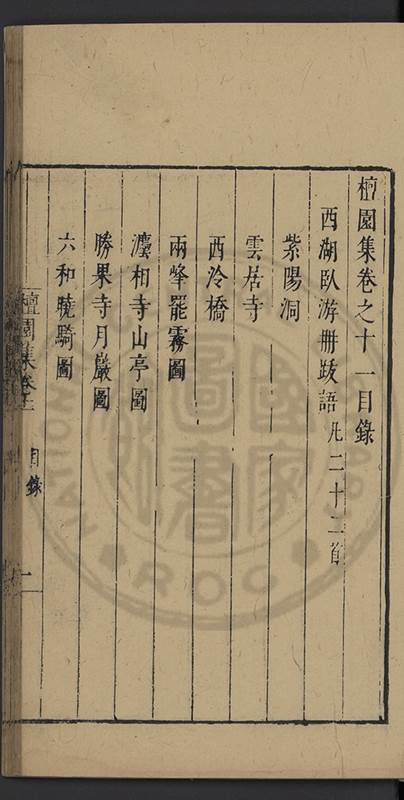 檀園集卷之十一目錄
西湖臥游冊跋語 凡二十二首
紫陽洞
雲居寺
西泠橋
兩峯罷霧圖
灋相寺山亭圖
勝果寺月巖圖
六和曉騎圖
檀園集卷十一 目錄 一
國家圖書